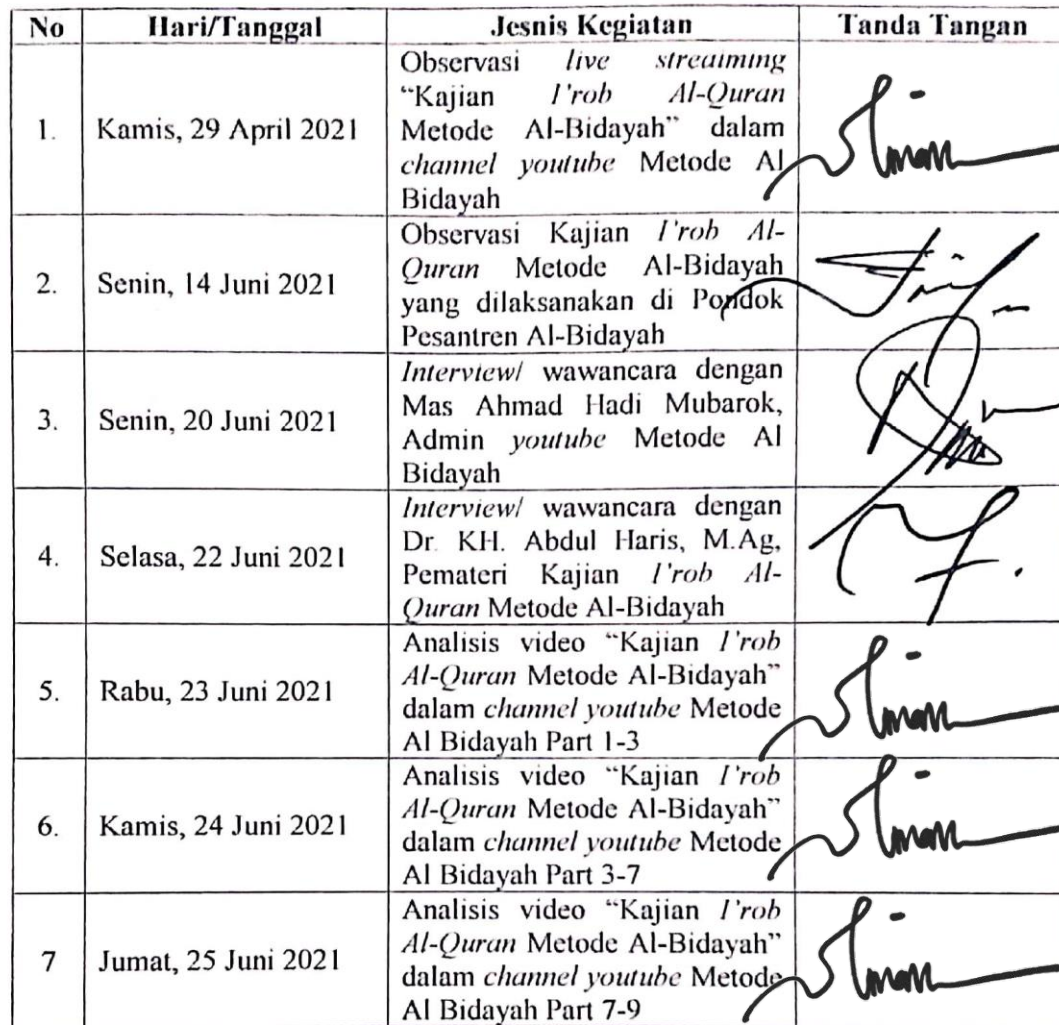 No Hari/Tanggal Jesnis Kegiatan Tanda Tangan
1. Kamis, 29 April 2021
Observasi live streaming
“Kajian I'rob Al-Quran
Metode Al-Bidayah” dalam
channel youtube Metode Al
Bidayah
2. Senin, 14 Juni 2021
Observasi Kajian I'rob Al-
Quran Metode Al-Bidayah
yang dilaksanakan di Pondok
Pesantren Al-Bidayah
3. Senin, 20 Juni 2021
Interview/ wawancara dengan
Mas Ahmad Hadi Mubarok,
Admin youtube Metode Al
Bidayah
4. Selasa, 22 Juni 2021
Interview/ wawancara dengan
Dr. KH. Abdul Haris, M.Ag,
Pemateri Kajian I'rob Al-
Quran Metode Al-Bidayah
5. Rabu, 23 Juni 2021
Analisis video “Kajian I'rob
Al-Quran Metode Al-Bidayah”
dalam channel youtube Metode
Al Bidayah Part 1-3
6. Kamis, 24 Juni 2021
Analisis video “Kajian I'rob
Al-Quran Metode Al-Bidayah”
dalam channel youtube Metode
Al Bidayah Part 3-7
7 Jumat, 25 Juni 2021
Analisis video “Kajian I'rob
Al-Quran Metode Al-Bidayah”
dalam channel youtube Metode
Al Bidayah Part 7-9